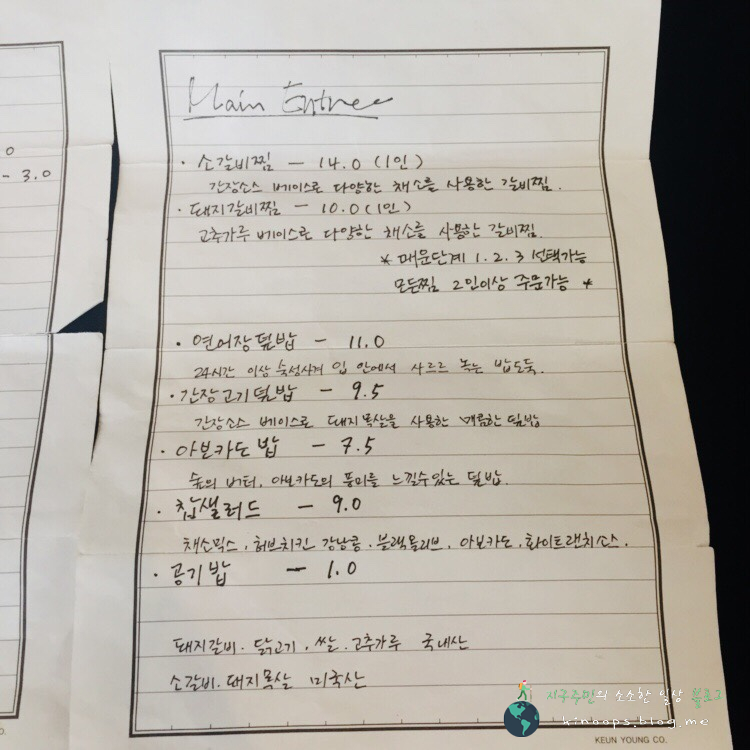 0
- 3.0
Main Entree
· 소갈비찜 - 14.0 (1인)
간장소스 베이스로 다양한 채소를 사용한 갈비찜.
· 돼지갈비찜 - 10.0 (1인)
고추가루 베이스로 다양한 채소를 사용한 갈비찜.
* 매운단계 1. 2. 3 선택가능
모든찜 2인이상 주문가능 *
· 연어장덮밥 - 11.0
24시간 이상 숙성시켜 입 안에서 사르르 녹는 밥도둑.
· 간장고기덮밥 - 9.5
간장소스 베이스로 돼지목살을 사용한 매콤한 덮밥
· 아보카도 밥 - 7.5
숲의 버터, 아보카도의 풍미를 느낄수있는 덮밥.
· 찹샐러드 - 9.0
채소믹스, 허브치킨 강낭콩. 블랙올리브, 아보카도, 화이트랜치소스.
· 공기밥 - 1.0
돼지갈비. 닭고기, 쌀. 고추가루 국내산
소갈비. 돼지목살 미국산
지구주민의 소소한 일상 블로그
kinoops.blog.me
KEUN YOUNG CO.
O.